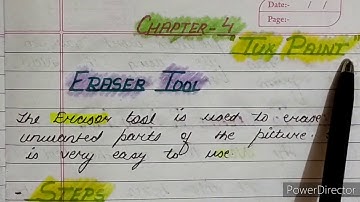 Date:- / /
Page:-
CHAPTER-4
"TUX PAINT"
ERASER TOOL
The Eraser tool is used to erase
unwanted parts of the picture.
is very easy to use.
- STEPS
PowerDirector